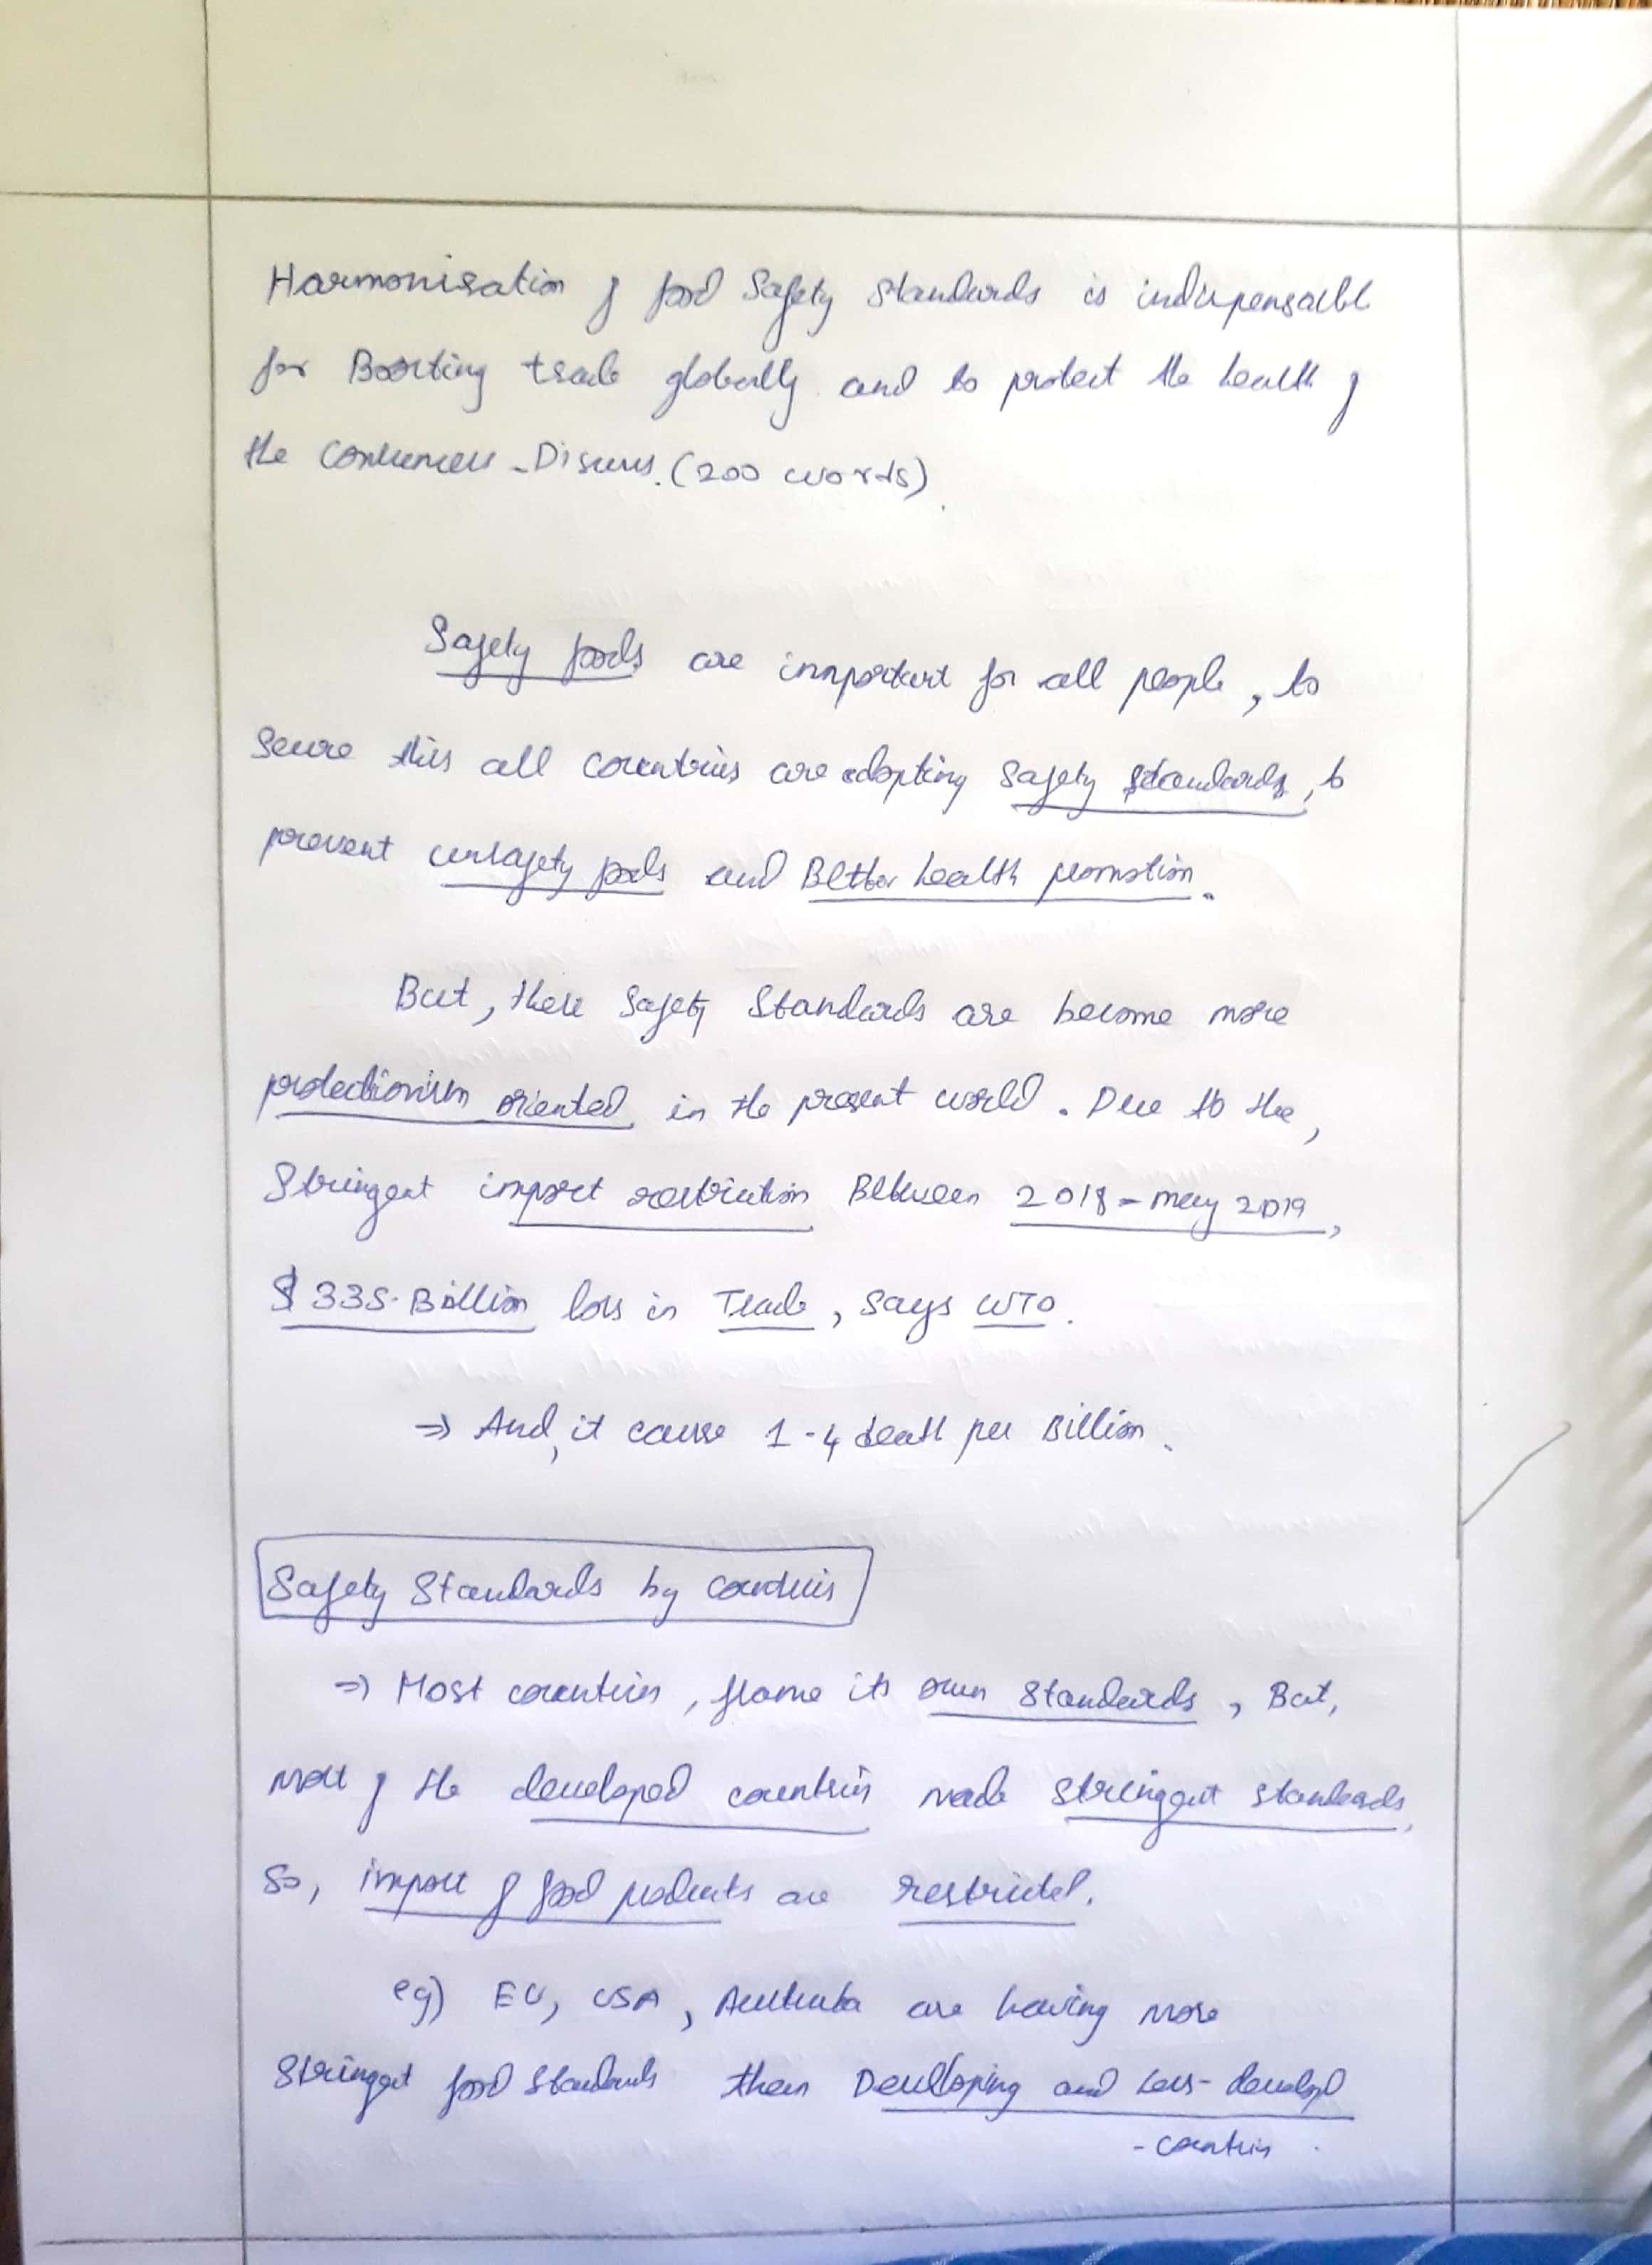 Harmonisation of food Safety standards is indispensable
for Boosting trade globally and to protect the health of
the consumers - Discuss. (200 words)
Safety foods are important for all people, to
secure this all countries are adopting safety standards, to
prevent unsafety foods and Better health promotion.
But, these Safety Standards are become more
protectionism oriented in the present world. Due to the,
Stringent import restriction Between 2018 - may 2019,
$ 335 Billion loss in Trade, says WTO.
⇒ And, it cause 1-4 death per Billion.
Safety Standards by countries
⇒ Most countries, frame its own standards, But,
most of the developed countries made stringent standards,
So, import of food products are restricted.
eg) EU, USA, Australia are having more
Stringent food standards then Developing and Less-developed
- countries.